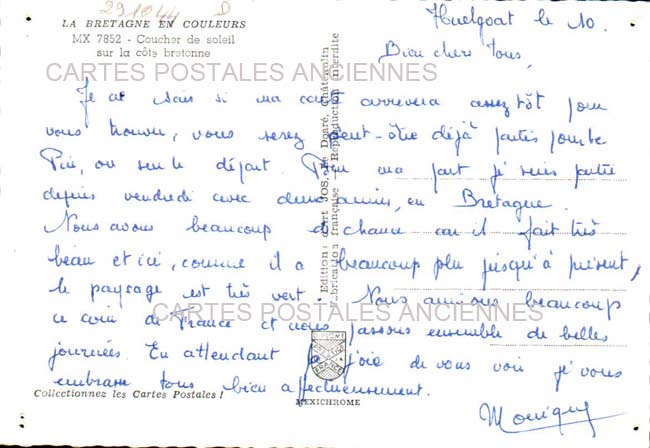 291044
LA BRETAGNE EN COULEURS
MX 7852 - Coucher de soleil
sur la côte bretonne
Huelgoat le 10.
Bien chers tous,
CARTES POSTALES ANCIENNES
Je ne sais si ma carte arrivera assez tôt pour
vous trouver, vous serez peut-être déjà partis pour le
ou sur le départ. Pour ma part je suis partie
depuis vendredi avec deux amies, en Bretagne.
Nous avons beaucoup de chance car il fait très
beau et ici, comme il a beaucoup plu jusqu'à présent,
le paysage est très vert. Nous aimons beaucoup
CARTES POSTALES ANCIENNES
ce coin de France et nous passons ensemble de belles
journées. En attendant la joie de vous voir je vous
embrasse tous bien affectueusement.
Monique
Collectionnez les Cartes Postales !
MEXICHROME
Editions d'Art JOS Le Doaré, Châteaulin
Fabrication française - Reproduction interdite